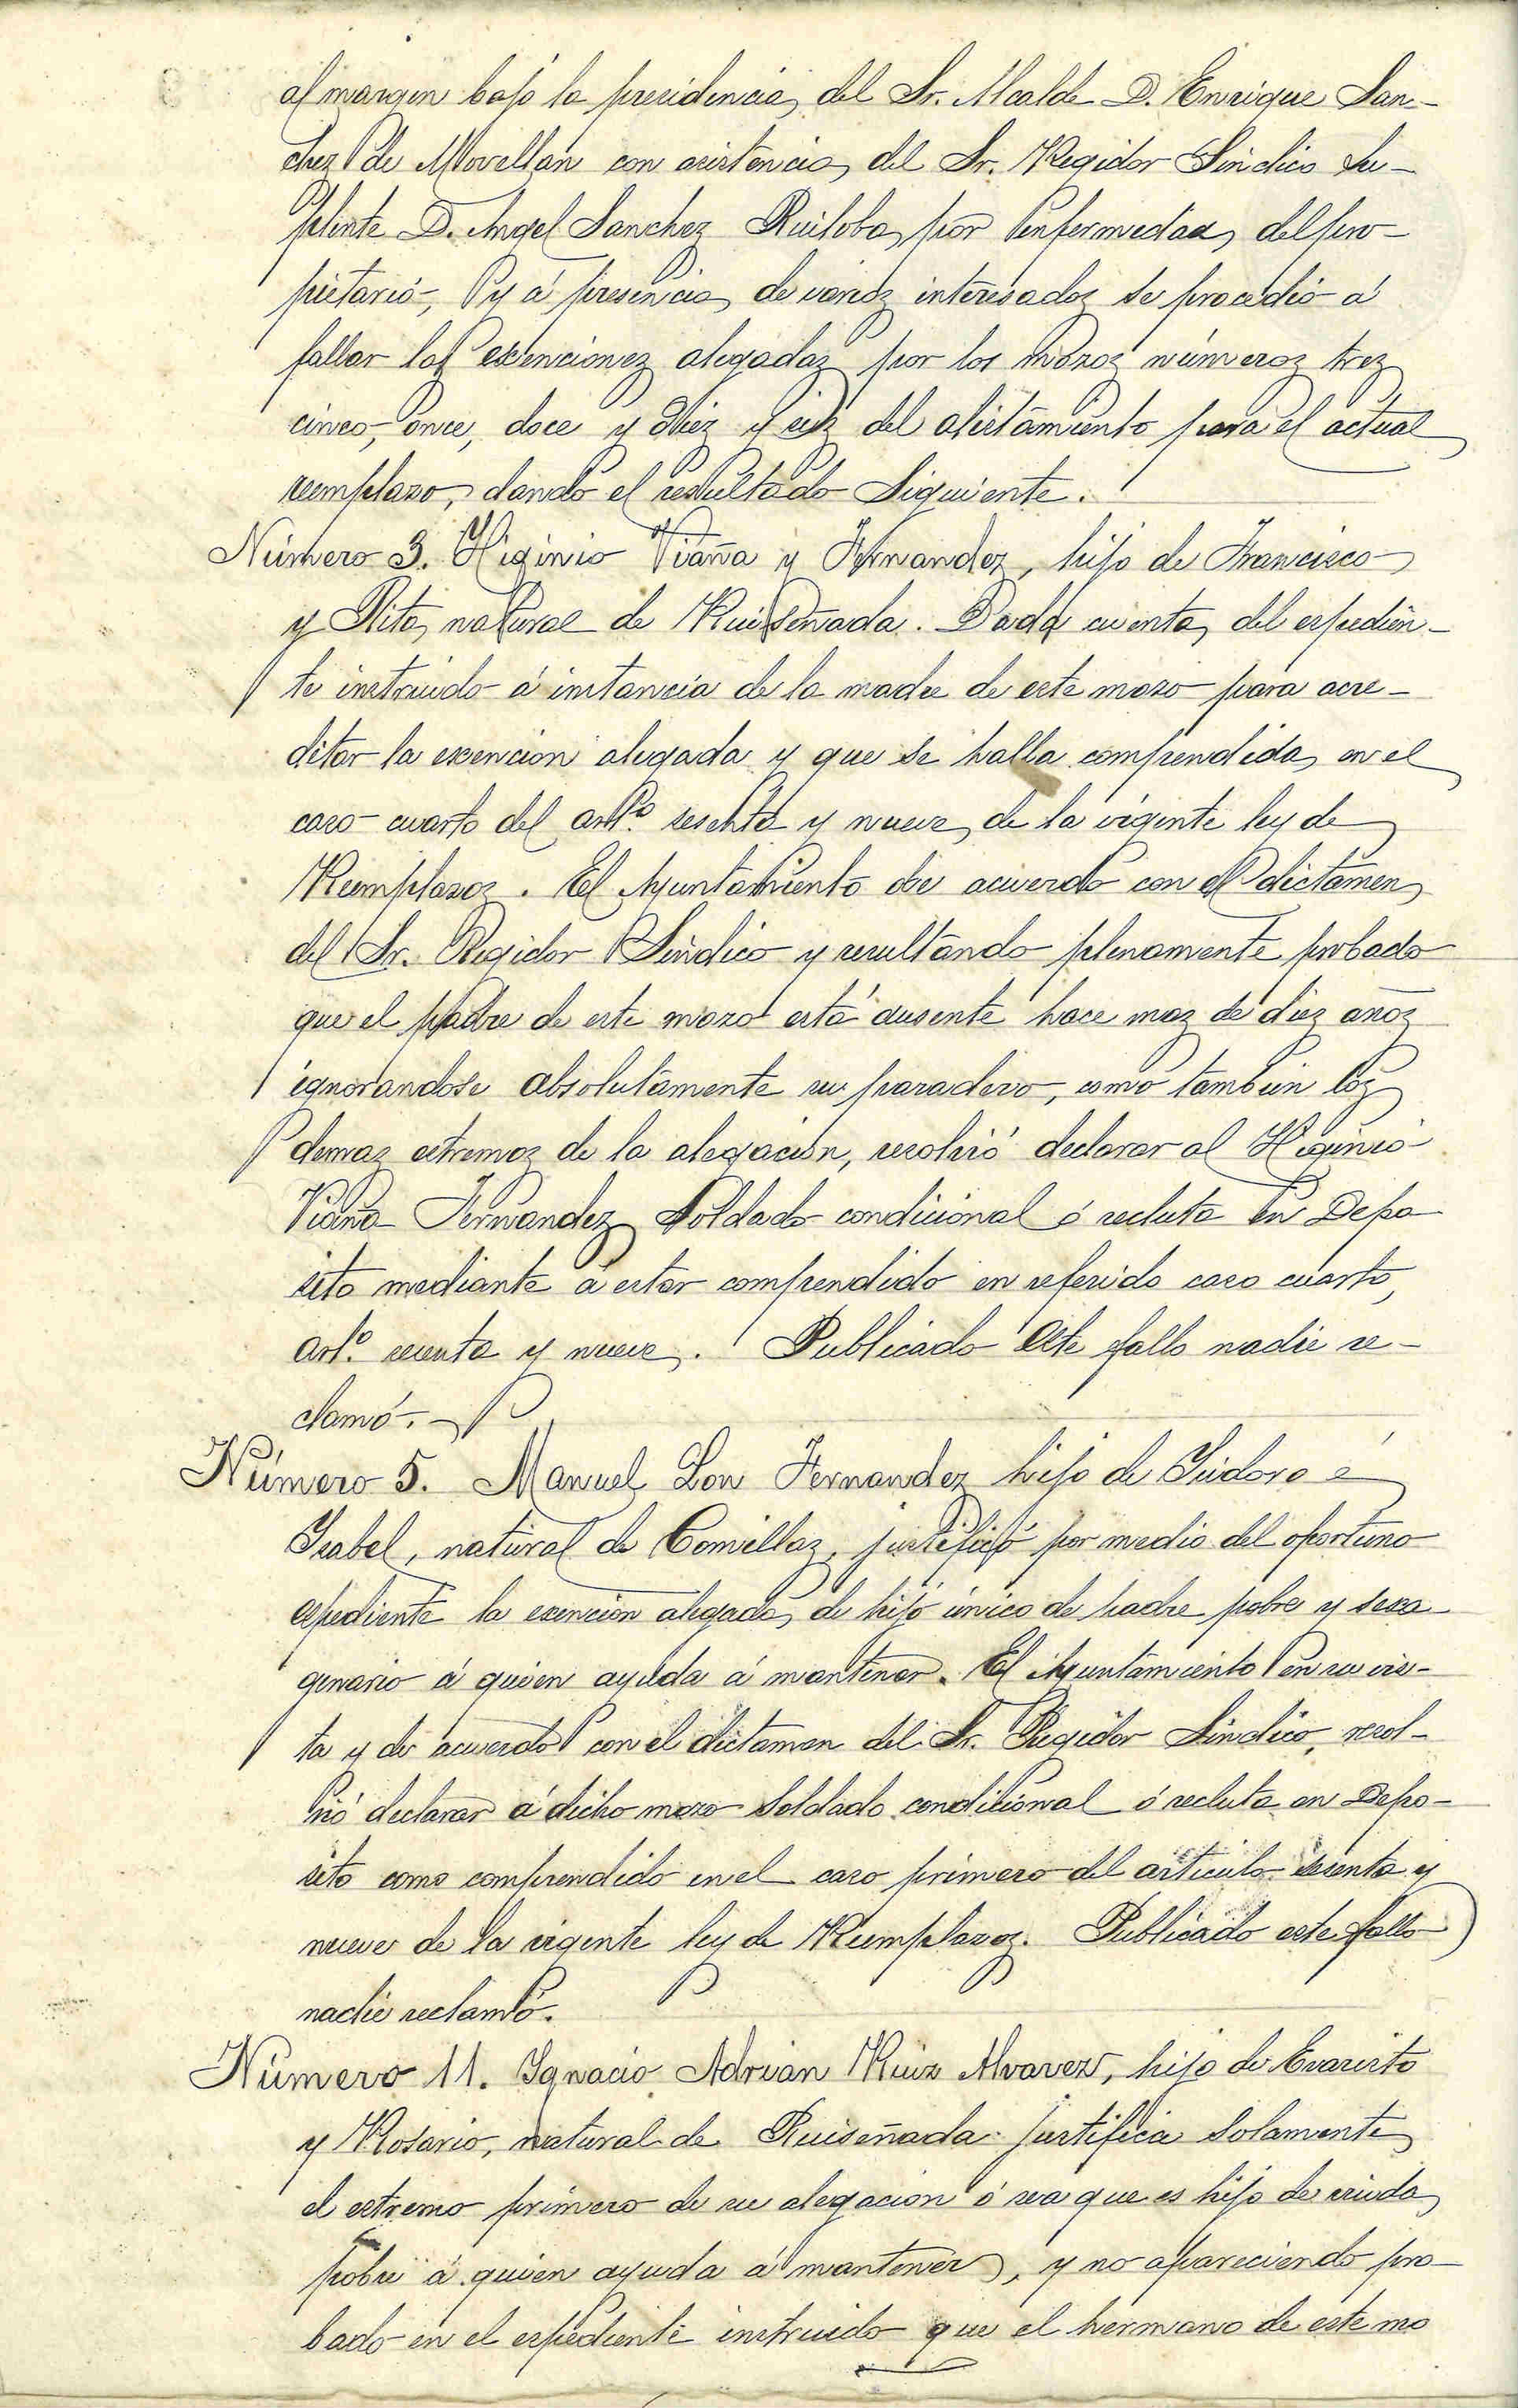 al margen bajo la presidencia del Sr. Alcalde D. Enrique San-
chez de Movellan con asistencia del Sr. Regidor Sindico Su-
plente D. Angel Sanchez Ruiloba por enfermedad del pro-
pietario, y á presencia de varios interesados se procedió á
fallar las exenciones alegadas por los mozos números tres
cinco, once, doce y diez y seis del alistamiento para el actual
reemplazo, dando el resultado siguiente.
Número 3. Higinio Viaña y Fernandez, hijo de Francisco
y Rita, natural de Ruiseñada. Dada cuenta del espedien-
te instruido á instancia de la madre de este mozo para acre-
ditar la exención alegada y que se halla comprendida en el
caso cuarto del artº. sesenta y nueve de la vigente ley de
Reemplazos. El Ayuntamiento de acuerdo con el dictamen
del Sr. Regidor Sindico y resultando plenamente probado
que el padre de este mozo está ausente hace mas de diez años
ignorandose absolutamente su paradero, como tambien los
demas estremos de la alegación, resolvió declarar al Higinio
Viaña Fernandez Soldado condicional ó recluta en Depo
sito mediante á estar comprendido en referido caso cuarto,
artº. sesenta y nueve. Publicado este fallo nadie re-
clamó.
Número 5. Manuel Lon Fernandez hijo de Isidoro é
Isabel, natural de Comillas, justificó por medio del oportuno
espediente la exención alegada de hijo único de padre pobre y sexa-
genario á quien ayuda á mantener. El Ayuntamiento en su vis-
ta y de acuerdo con el dictamen del Sr. Regidor Sindico, resol-
vió declarar á dicho mozo Soldado condicional ó recluta en Depo-
sito como comprendido en el caso primero del articulo sesenta y
nueve de la vigente ley de Reemplazos. Publicado este fallo
nadie reclamó.
Número 11. Ignacio Adrian Ruiz Alvarez, hijo de Evaristo
y Rosario, natural de Ruiseñada. justifica solamente
el estremo primero de su alegacion ó sea que es hijo de viuda
pobre á quien ayuda á mantener, y no apareciendo pro-
bado en el espediente instruido que el hermano de este mo